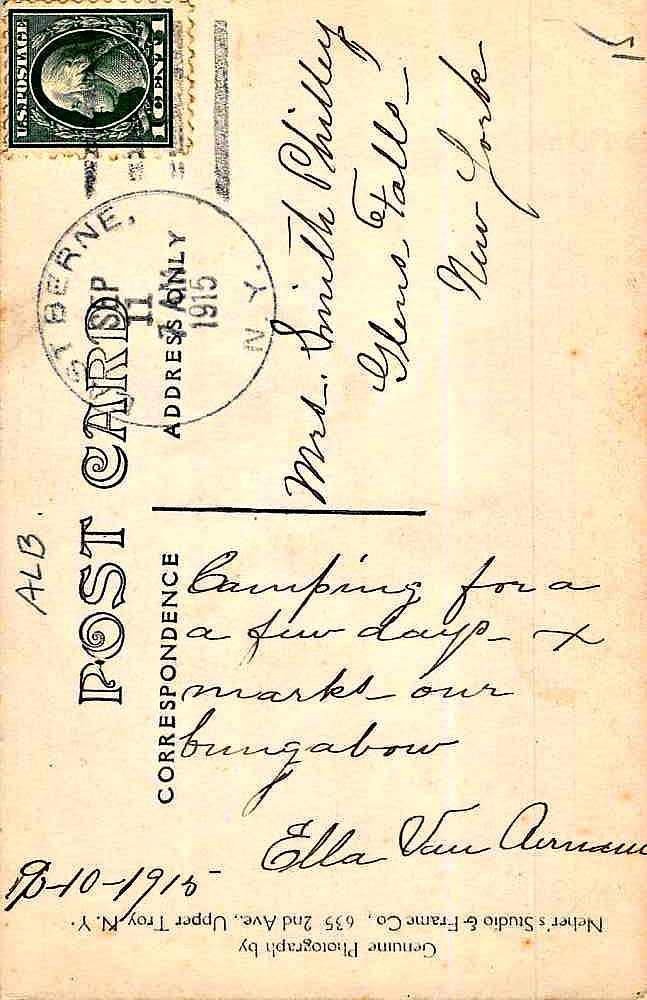 U.S. POSTAGE
1 CENT 1
ST BERNE,
SEP
11
AM
1915
N.Y.
ALB.
15
POST CARD
CORRESPONDENCE
ADDRESS ONLY
Mrs. Smith Philley
Glens Falls
New York
Camping for a
a few days - x
marks our
bungabow
Ella Van Aernam
9-10-1915
Genuine Photograph by
Neher's Studio & Frame Co., 635 2nd Ave., Upper Troy N.Y.